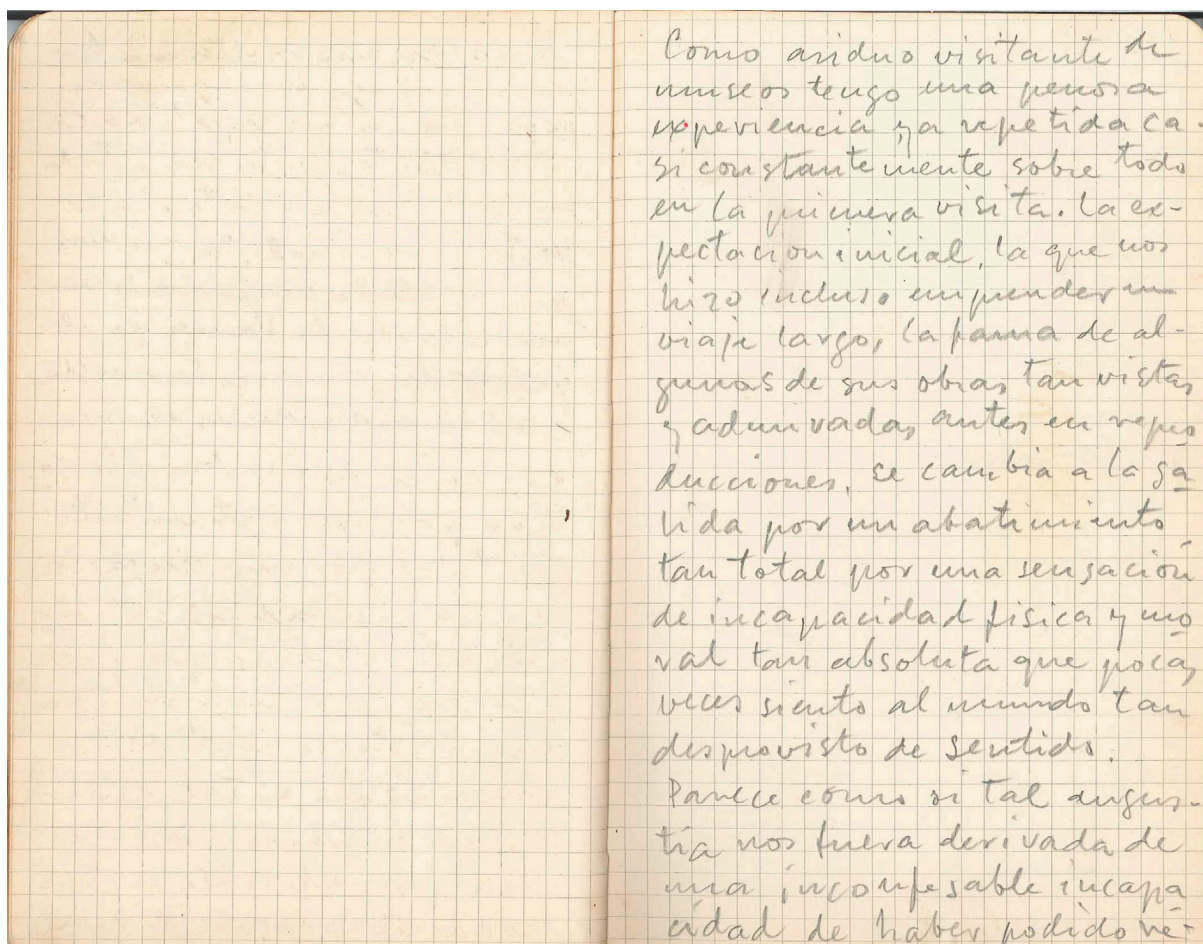 Como asiduo visitante de
museos tengo una penosa
experiencia ya repetida ca-
si constantemente sobre todo
en la primera visita. La ex-
pectacion inicial, la que nos
hizo incluso emprender un
viaje largo, la fama de al-
gunas de sus obras tan vistas
y admiradas antes en repro
ducciones, se cambia a la sa
lida por un abatimiento
tan total por una sensación
de incapacidad fisica y mo
ral tan absoluta que pocas
veces siento al mundo tan
desprovisto de sentido.
Parece como si tal angus-
tia nos fuera derivada de
una inconfesable incapa
cidad de haber podido ve-